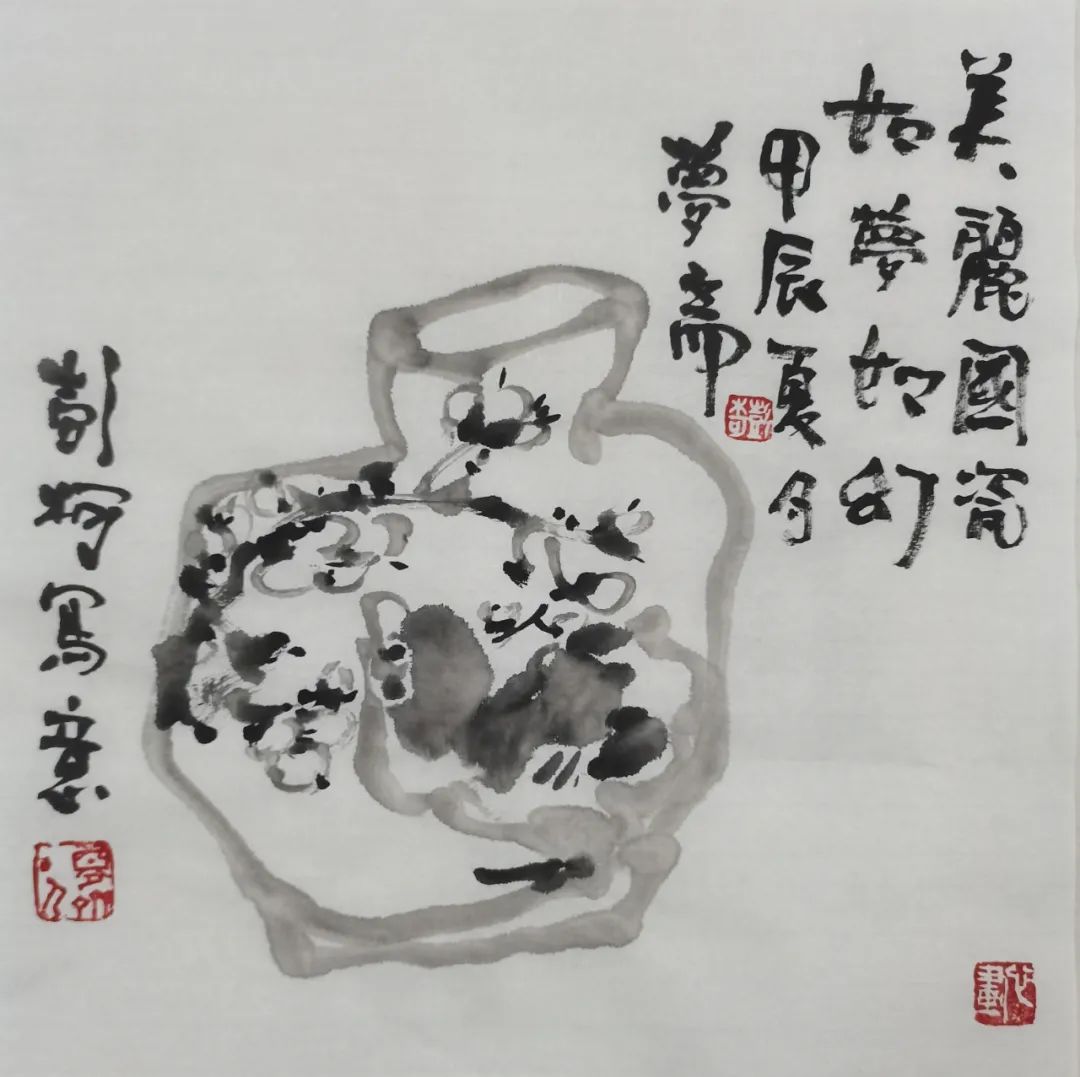 美麗國瓷
如夢如幻
甲辰夏月
夢齋
彭柯寫意